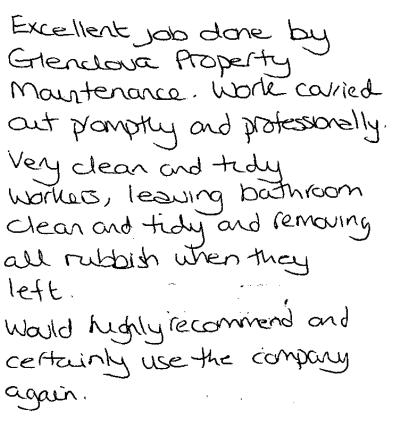 Excellent job done by
Glenclova Property
Maintenance. Work carried
out promptly and professionally.
Very clean and tidy
workers, leaving bathroom
clean and tidy and removing
all rubbish when they
left.
Would highly recommend and
certainly use the company
again.